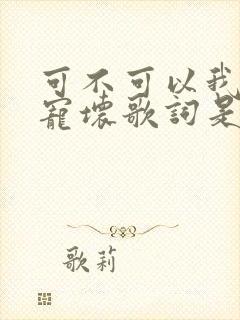 可不可以我
寵壞歌詞是
歌莉